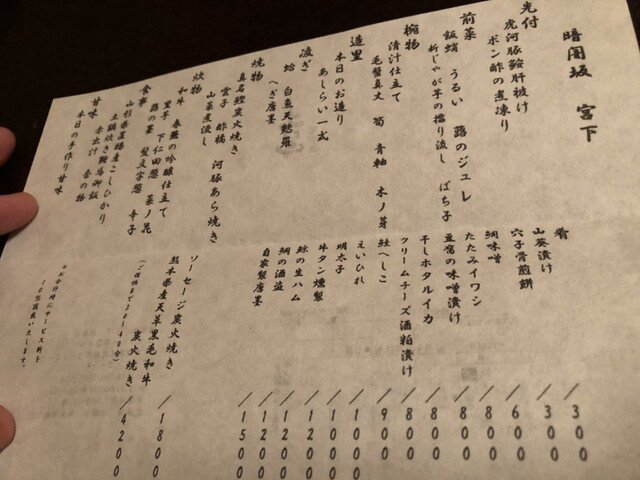 暗闇坂 宮下
先付
虎河豚鮟肝被け
ポン酢の煮凍り
前菜
飯蛸 うるい 蕗のジュレ
新じゃが芋の擂り流し ばち子
椀物
清汁仕立て
毛蟹真丈 筍 青軸 木ノ芽
造里
本日のお造り
あしらい一式
凌ぎ
蛤 白魚天麩羅
へぎ唐墨
焼物
真名鰹炭火焼き
雲子 酢橘 河豚あら焼き
山菜煮浸し
炊物
和牛 春蕪の吟醸仕立て
里芋 下仁田葱 菜ノ花
蕗の薹 髪文字葱 辛子
食事
山形県直播産こしひかり
土鍋炊き鞍馬御飯
赤出汁 香の物
甘味
本日の手作り甘味
肴
山葵漬け /300
穴子骨煎餅 /300
鯛味噌 /600
たたみイワシ /800
豆富の味噌漬け /800
干しホタルイカ /800
クリームチーズ酒粕漬け /800
鮭へしこ /900
えいひれ /1000
明太子 /1000
牛タン燻製 /1200
鯨の生ハム /1200
鯛の酒盗 /1200
自家製唐墨 /1500
ソーセージ炭火焼き /1800
熊本県産天草黒毛和牛
炭火焼き /4200